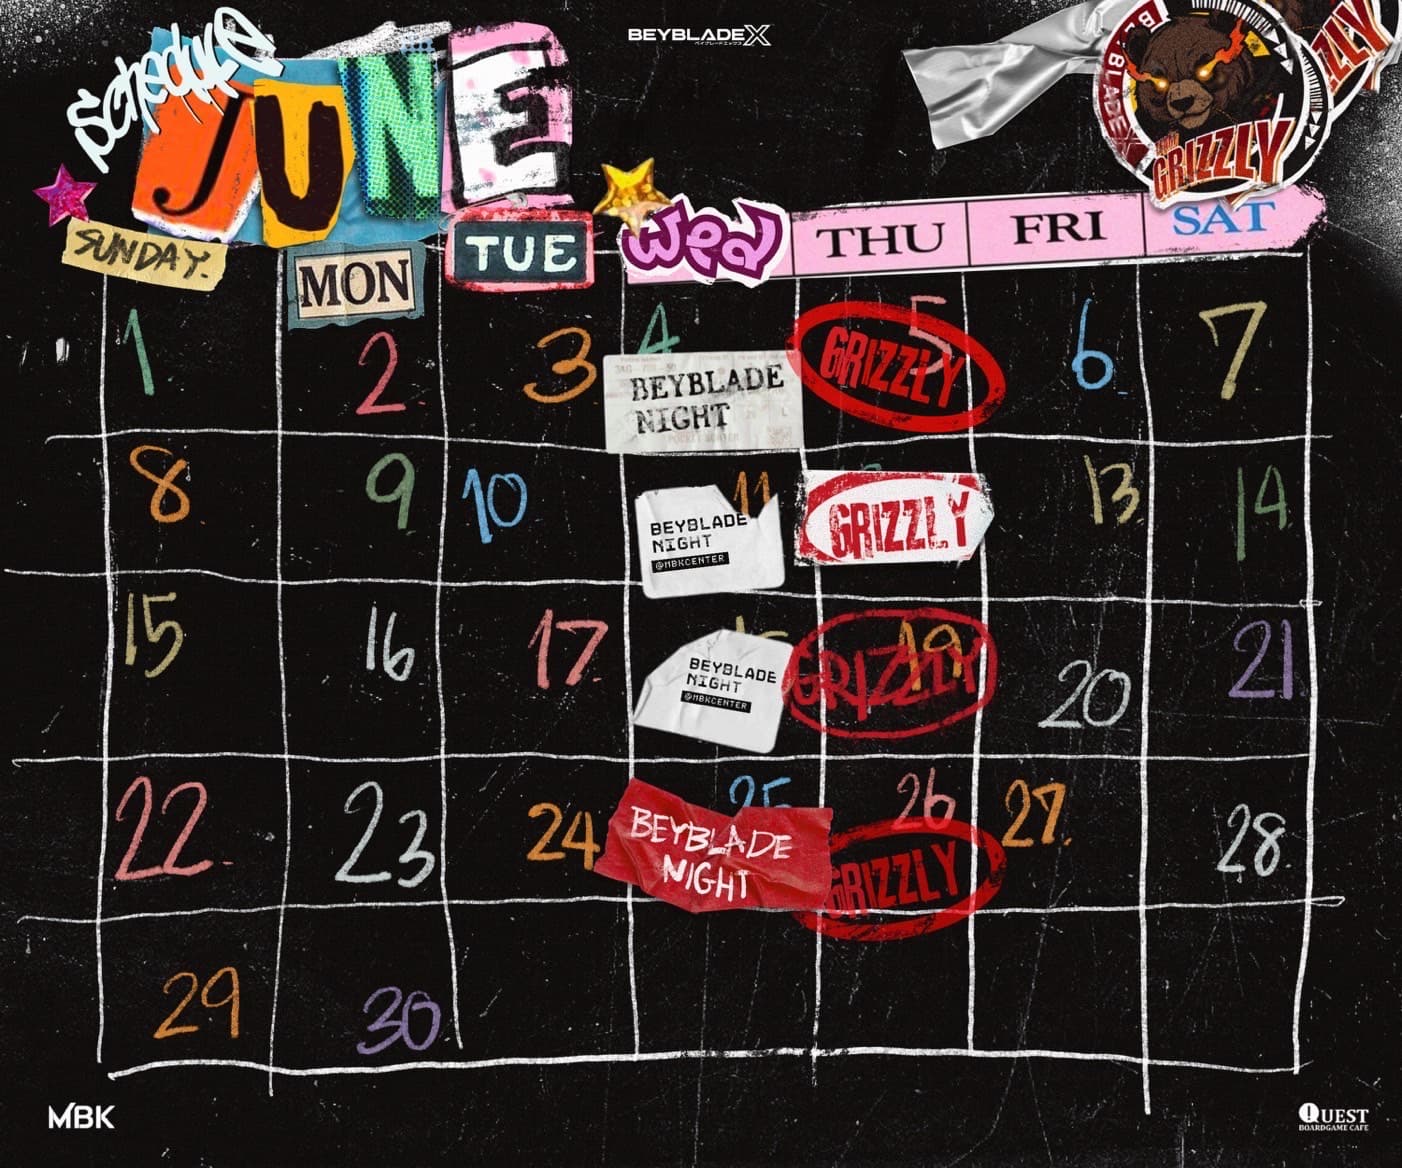 Schedule
JUNE
BEYBLADE X
ベイブレードエックス
BEYBLADE X
GRIZZLY
SUNDAY.
MON
TUE
Wed
THU
FRI
SAT
1
2
3
4
BEYBLADE
NIGHT
5
GRIZZLY
6
7
8
9
10
11
BEYBLADE
NIGHT
@MBKCENTER
GRIZZLY
13
14
15
16
17
BEYBLADE
NIGHT
@MBKCENTER
19
GRIZZLY
20
21
22
23
24
25
BEYBLADE
NIGHT
26
GRIZZLY
27.
28
29
30
MBK
QUEST
BOARDGAME CAFE